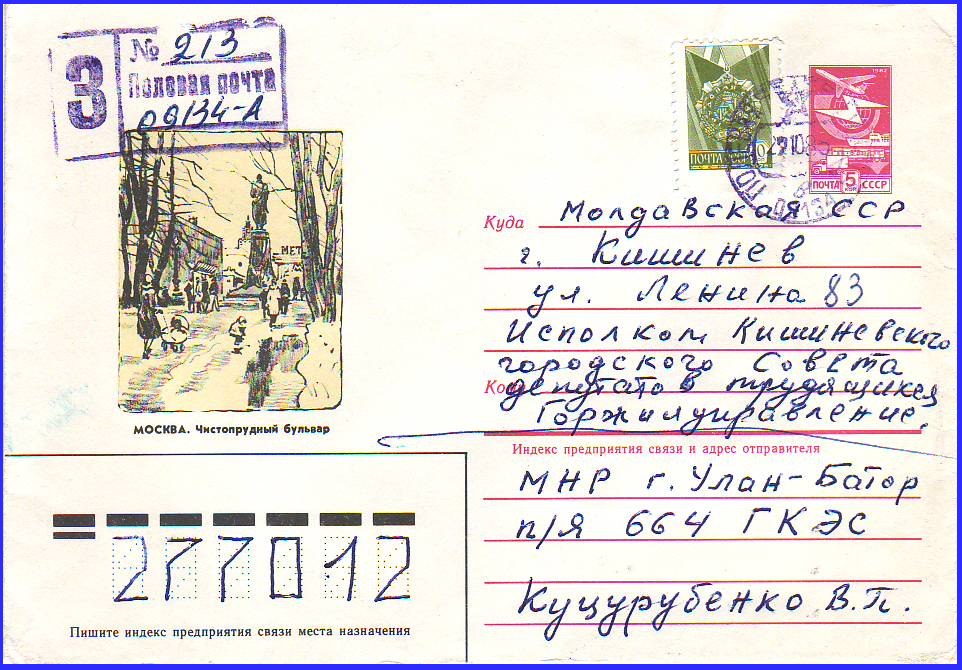 З
№ 213
Полевая почта
09134-А
МЕТ
1982
ПОЧТА СССР
ПОЧТА 5 КОП СССР
Куда Молдавская ССР
г. Кишинев
ул. Ленина 83
Исполком Кишиневского
городского Совета
Кому депутатов трудящихся
Горжилуправление.
МОСКВА. Чистопрудный бульвар
Индекс предприятия связи и адрес отправителя
МНР г. Улан-Батор
п/я 664 ГКЭС
Куцурубенко В.П.
277012
Пишите индекс предприятия связи места назначения